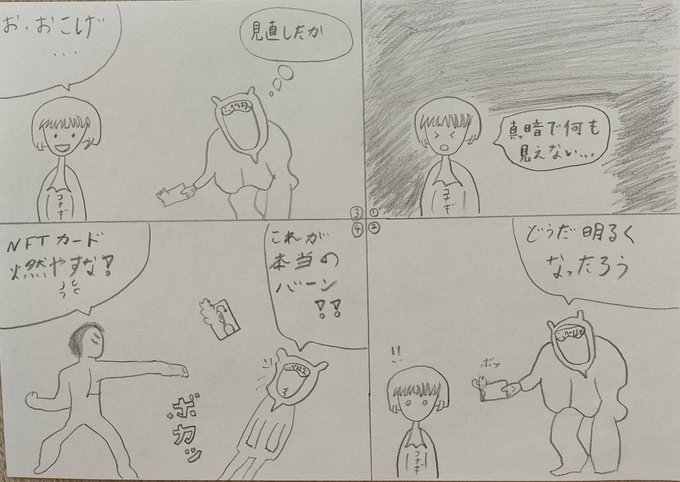 ①
真暗で何も
見えない...
コナギ
②
どうだ明るく
なったろう
!!
ボッ
コナギ
③
見直したか
お、おこげ
...
コナギ
④
これが
本当の
バーン
!!
NFTカード
燃やすな!
ボカッ